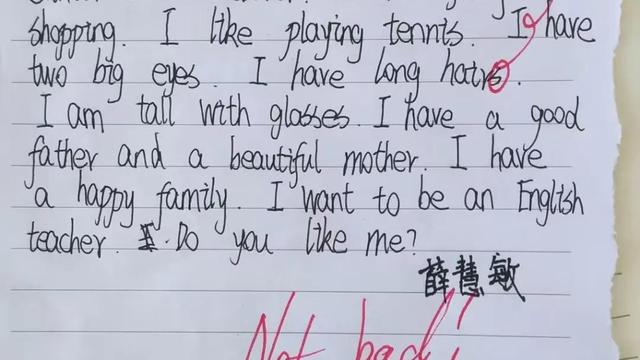 shopping. I like playing tennis. I have
two big eyes. I have long hairs.
I am tall with glasses. I have a good
father and a beautiful mother. I have
a happy family. I want to be an English
teacher. Do you like me?
薛慧敏
Not bad!